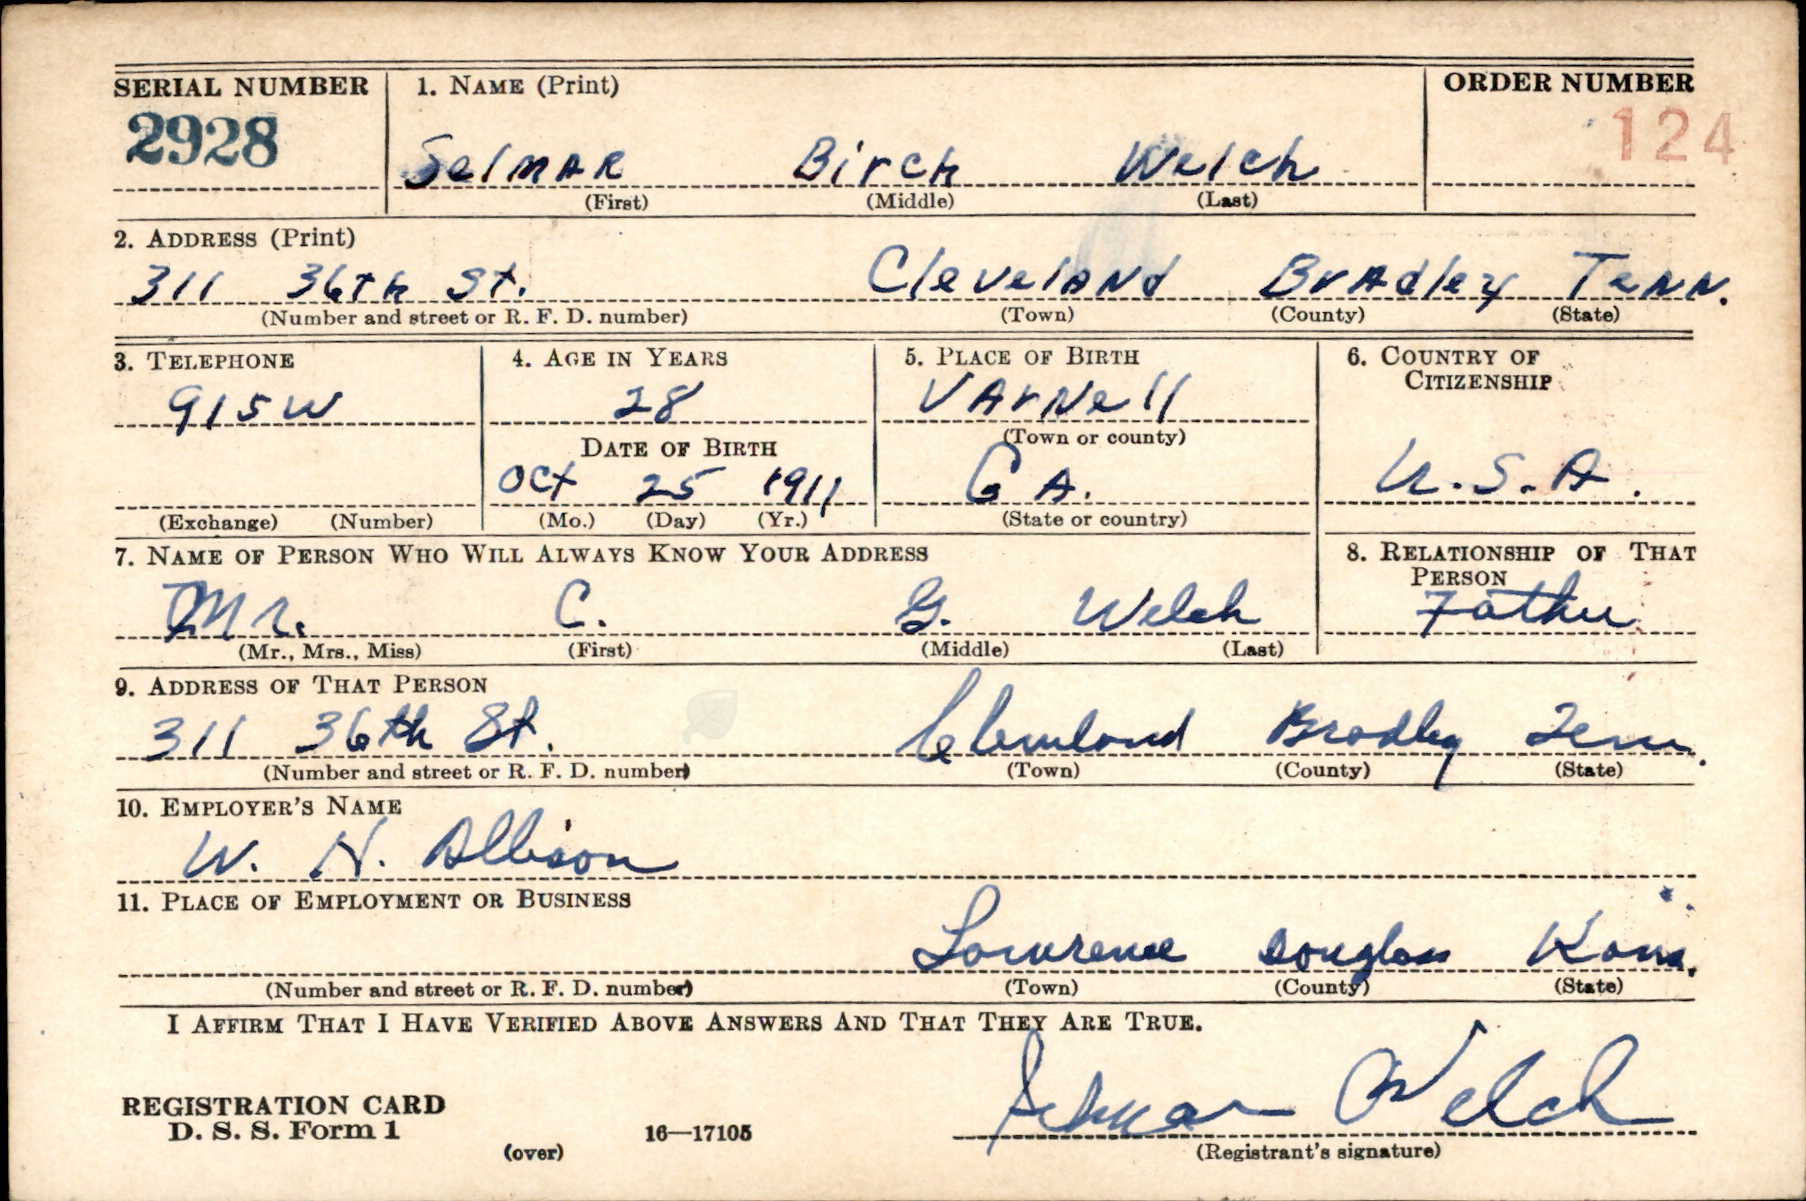 SERIAL NUMBER 1. NAME (Print) ORDER NUMBER
2928 Selmar Birch Welch 124
(First) (Middle) (Last)
2. ADDRESS (Print)
311 36th St. Cleveland Bradley Tenn.
(Number and street or R. F. D. number) (Town) (County) (State)
3. TELEPHONE 4. AGE IN YEARS 5. PLACE OF BIRTH 6. COUNTRY OF CITIZENSHIP
915W 28 Varnell
DATE OF BIRTH (Town or county)
Oct 25 1911 GA. U.S.A.
(Exchange) (Number) (Mo.) (Day) (Yr.) (State or country)
7. NAME OF PERSON WHO WILL ALWAYS KNOW YOUR ADDRESS 8. RELATIONSHIP OF THAT PERSON
Mr. C. G. Welch Father
(Mr., Mrs., Miss) (First) (Middle) (Last)
9. ADDRESS OF THAT PERSON
311 36th St. Cleveland Bradley Tenn.
(Number and street or R. F. D. number) (Town) (County) (State)
10. EMPLOYER'S NAME
W. H. Allison
11. PLACE OF EMPLOYMENT OR BUSINESS
Lawrence Douglas Kans.
(Number and street or R. F. D. number) (Town) (County) (State)
I AFFIRM THAT I HAVE VERIFIED ABOVE ANSWERS AND THAT THEY ARE TRUE.
Selmar Welch
REGISTRATION CARD
D. S. S. Form 1
(over) 16—17105 (Registrant's signature)